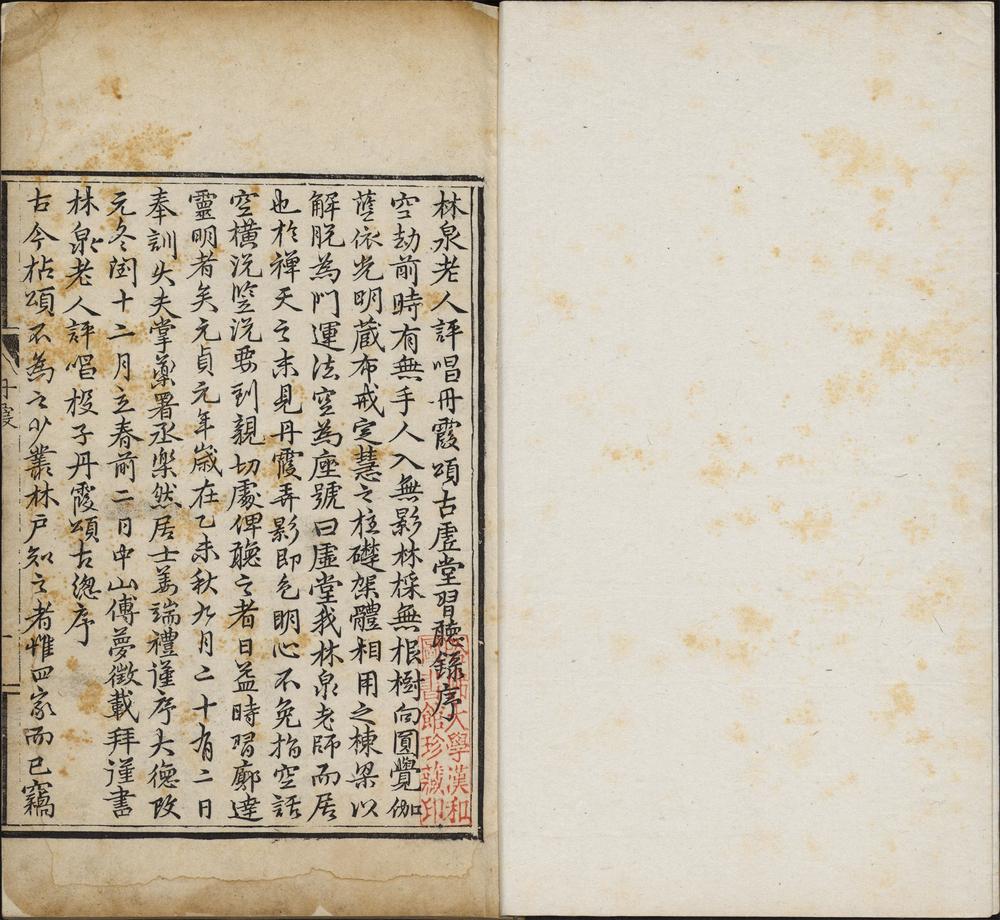 林泉老人評唱丹霞頌古虛堂習聽錄序
空劫前時有無手人入無影林採無根樹向圓覺伽
藍依光明藏布戒定慧之柱礎架體相用之棟梁以
解脫為門運法空為座號曰虛堂我林泉老師而居
也於禪天之末見丹霞弄影即色明心不免指空話
空橫說竖說要到親切處俾聽之者日益時習廓達
靈明者矣元貞元年歲在乙未秋九月二十有二日
奉訓大夫掌藥署丞樂然居士姜端禮謹序大德改
元冬閏十二月立春前二日中山傅夢徵載拜謹書
林泉老人評唱投子丹霞頌古總序
古今拈頌不為之少叢林戶知之者惟四家而已竊
丹霞
一
哈佛大學漢和
圖書館珍藏印